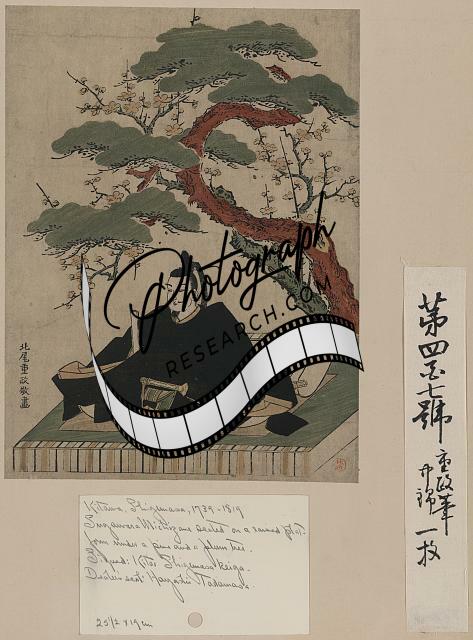 北尾重政敬畫
Photograph
RESEARCH.COM
Kitawo, Shigemasa, 1739-1819
Sugawara Michizane seated on a raised plat-
form under a pine and a plum tree.
Signed: Kitao Shigemasa keiga.
Dealer's seal: Hayashi Tadamasa.
25 1/2 x 19 cm
第四百七號
重政筆
中錦
一枚